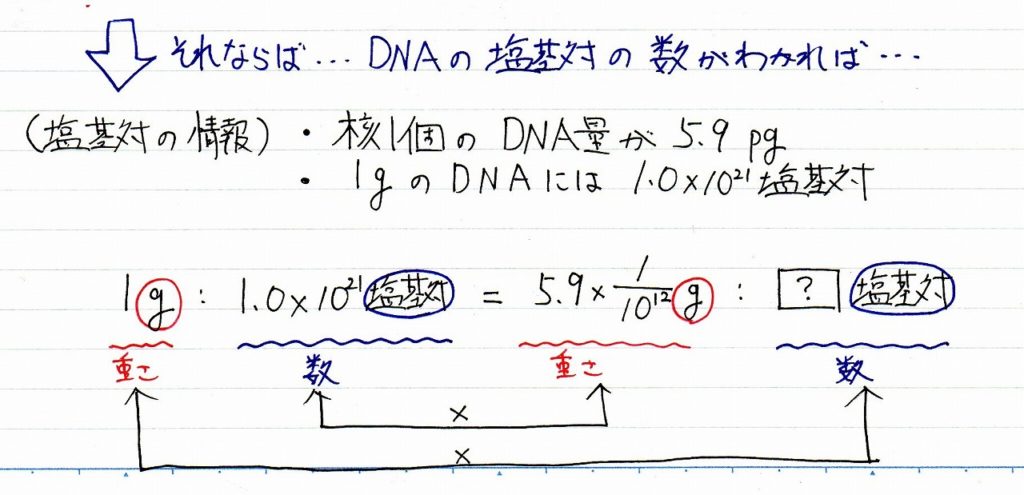 それならば… DNAの塩基対の数がわかれば…
(塩基対の情報)・核1個のDNA量が 5.9 pg
・1gのDNAには 1.0×10²¹塩基対
1g : 1.0×10²¹塩基対 = 5.9×1/10¹² g : ? 塩基対
重さ 数 重さ 数
×
×